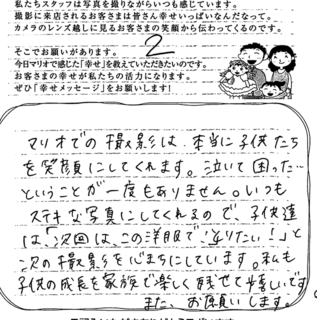 私たちスタッフは写真を撮りながらいつも感じています。
撮影に来店されるお客さまは皆さん幸せいっぱいなんだなって。
カメラのレンズ越しに見るお客さまの笑顔から伝わってくるのです。
2
そこでお願いがあります。
今日マリオで感じた「幸せ」を教えていただきたいのです。
お客さまの幸せが私たちの活力になります。
ぜひ「幸せメッセージ」をお願いします!
マリオでの撮影は、本当に子供たち
を笑顔にしてくれます。泣いて困った…
ということが一度もありません。いつも
ステキな写真にしてくれるので、子供達
は「次回は、この洋服でとりたい!」と
次の撮影を心まちにしています。私も
子供の成長を家族で楽しく残せて嬉しいです
また、お願いします。